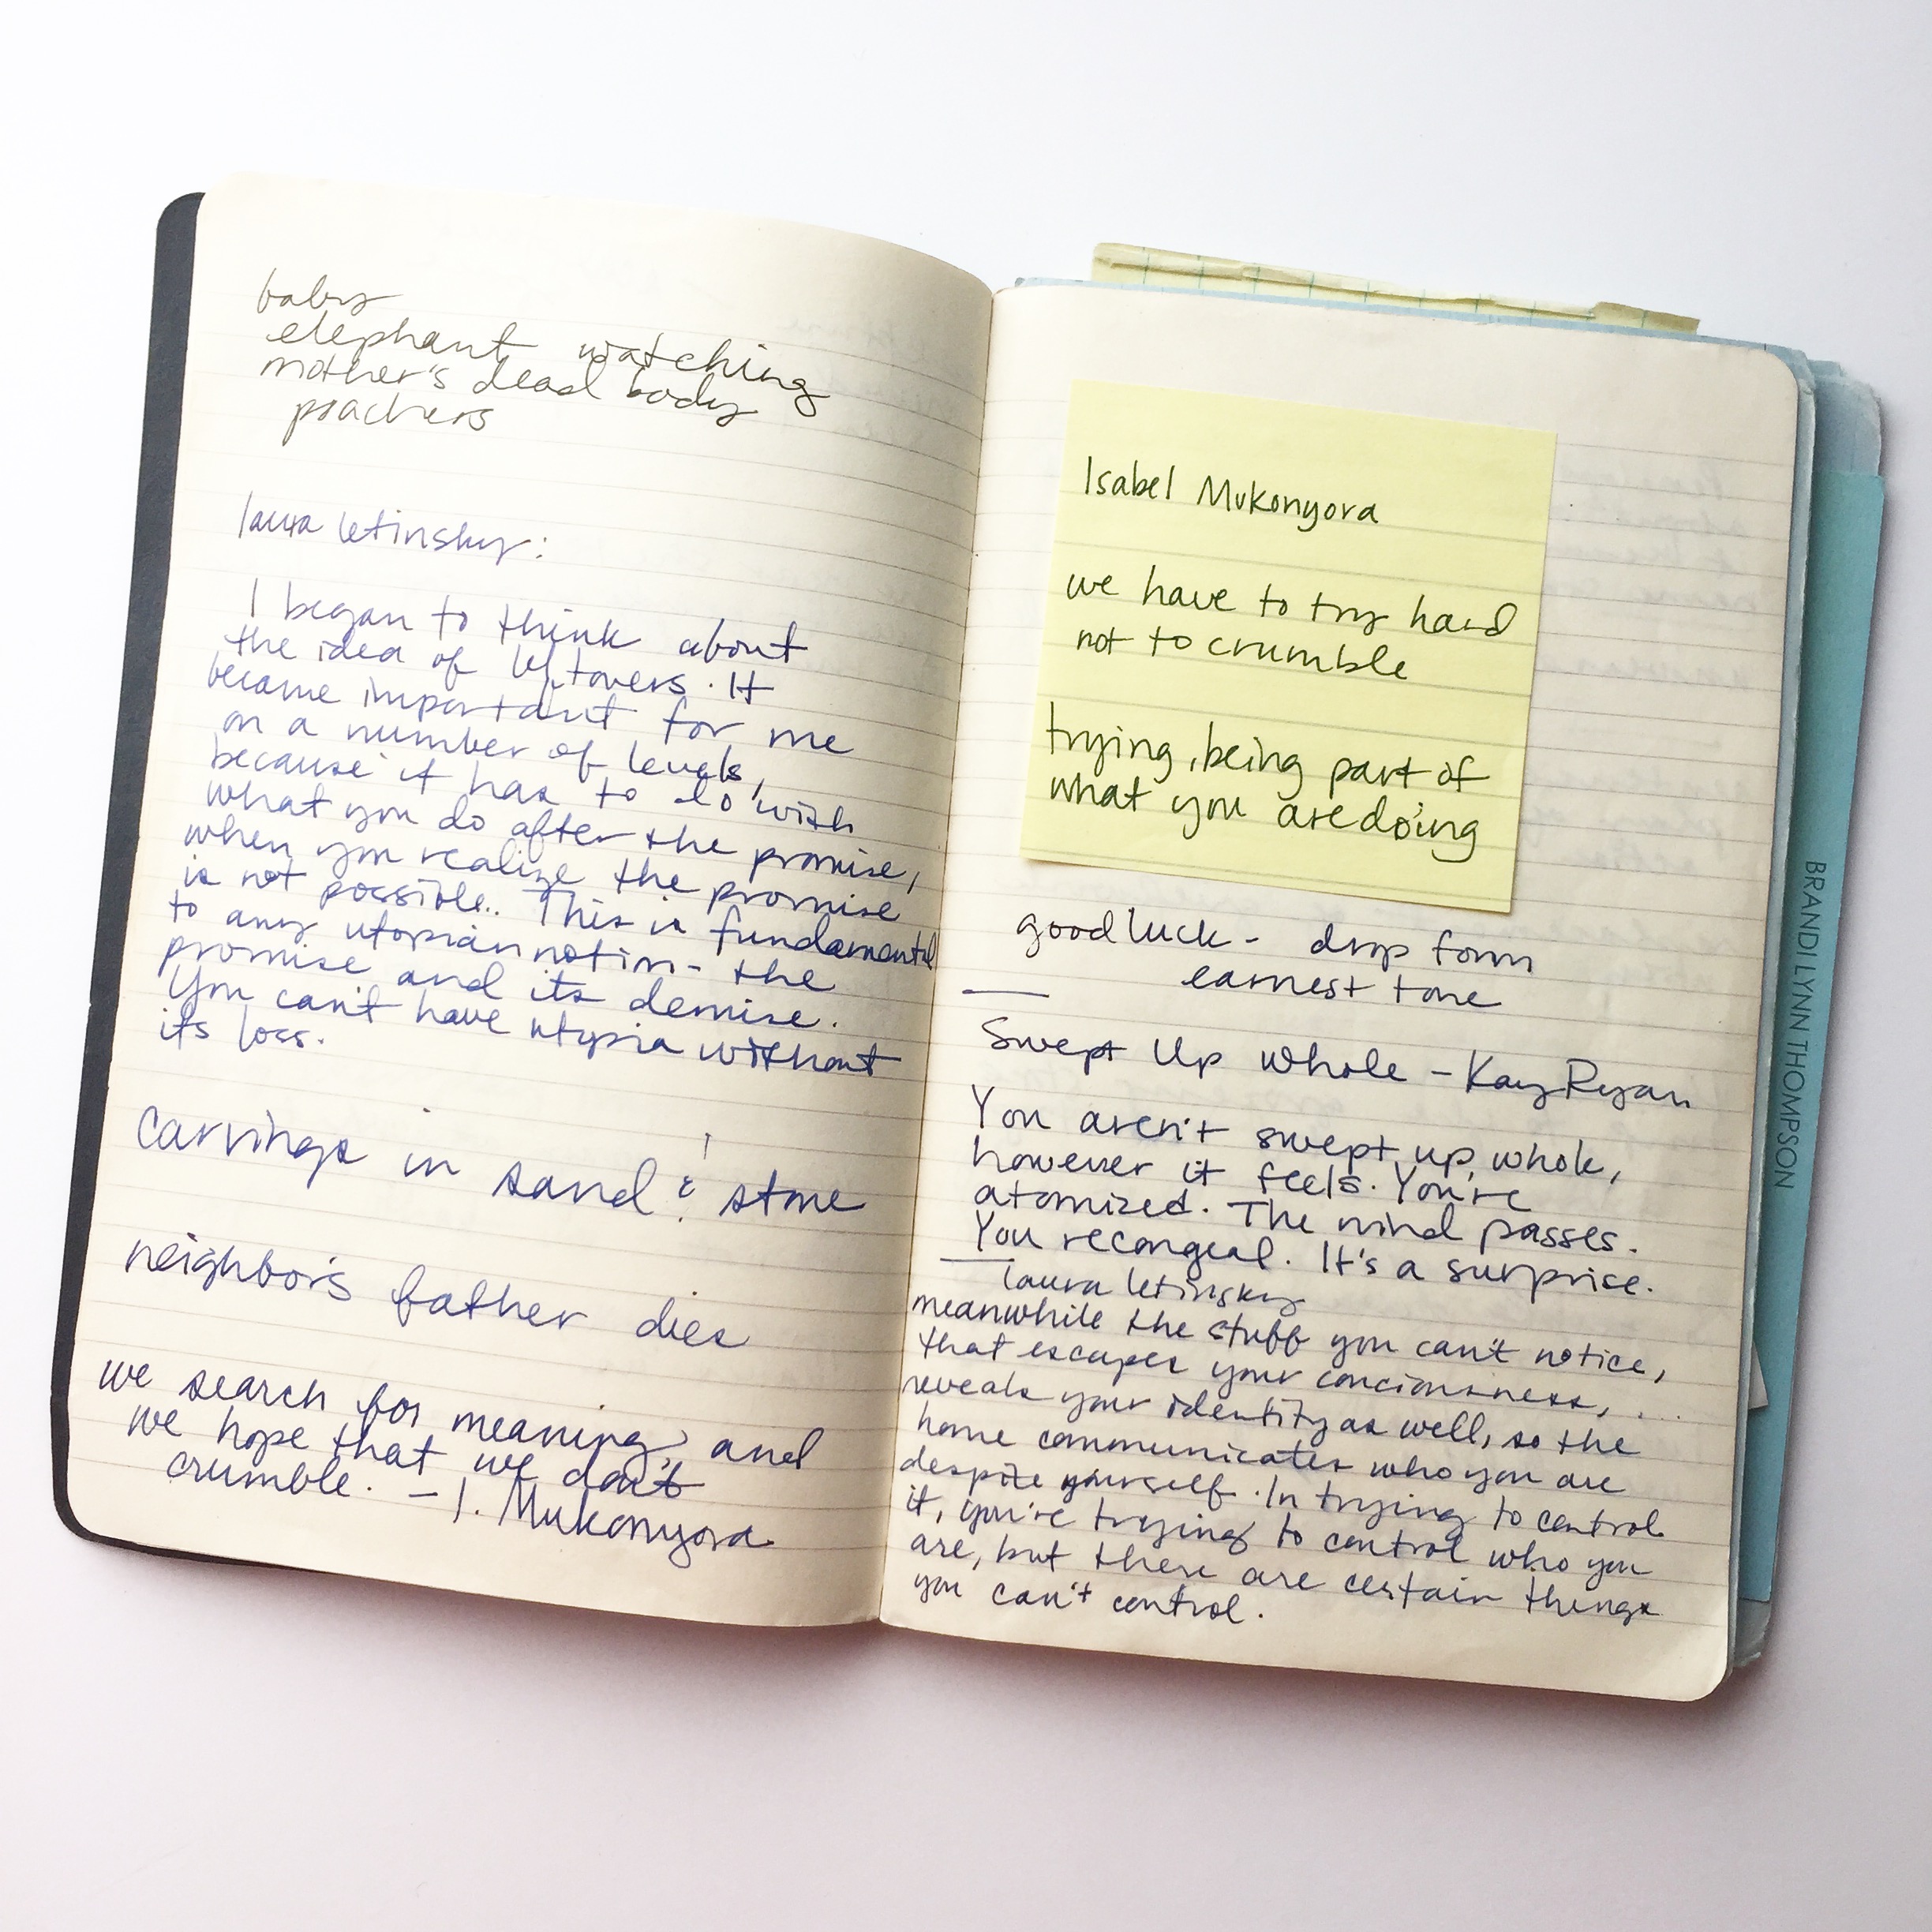 baby
elephant watching
mother's dead body
poachers
laura letinsky:
I began to think about
the idea of leftovers. It
became important for me
on a number of levels,
because it has to do with
what you do after the promise,
when you realize the promise
is not possible.. This is fundamental
to any utopian notion - the
promise and its demise.
You can't have utopia without
its loss.
Carvings in sand & stone
neighbor's father dies
we search for meaning, and
we hope that we don't
crumble. - I. Mukonyora
Isabel Mukonyora
we have to try hard
not to crumble
trying, being part of
what you are doing
good luck - drop form
earnest tone
Swept Up Whole - Kay Ryan
You aren't swept up whole,
however it feels. You're
atomized. The wind passes.
You recongeal. It's a surprise.
laura letinsky
meanwhile the stuff you can't notice,
that escapes your conciousness, ...
reveals your identity as well, so the
home communicates who you are
despite yourself. In trying to control
it, you're trying to control who you
are, but there are certain things
you can't control.
BRANDI LYNN THOMPSON